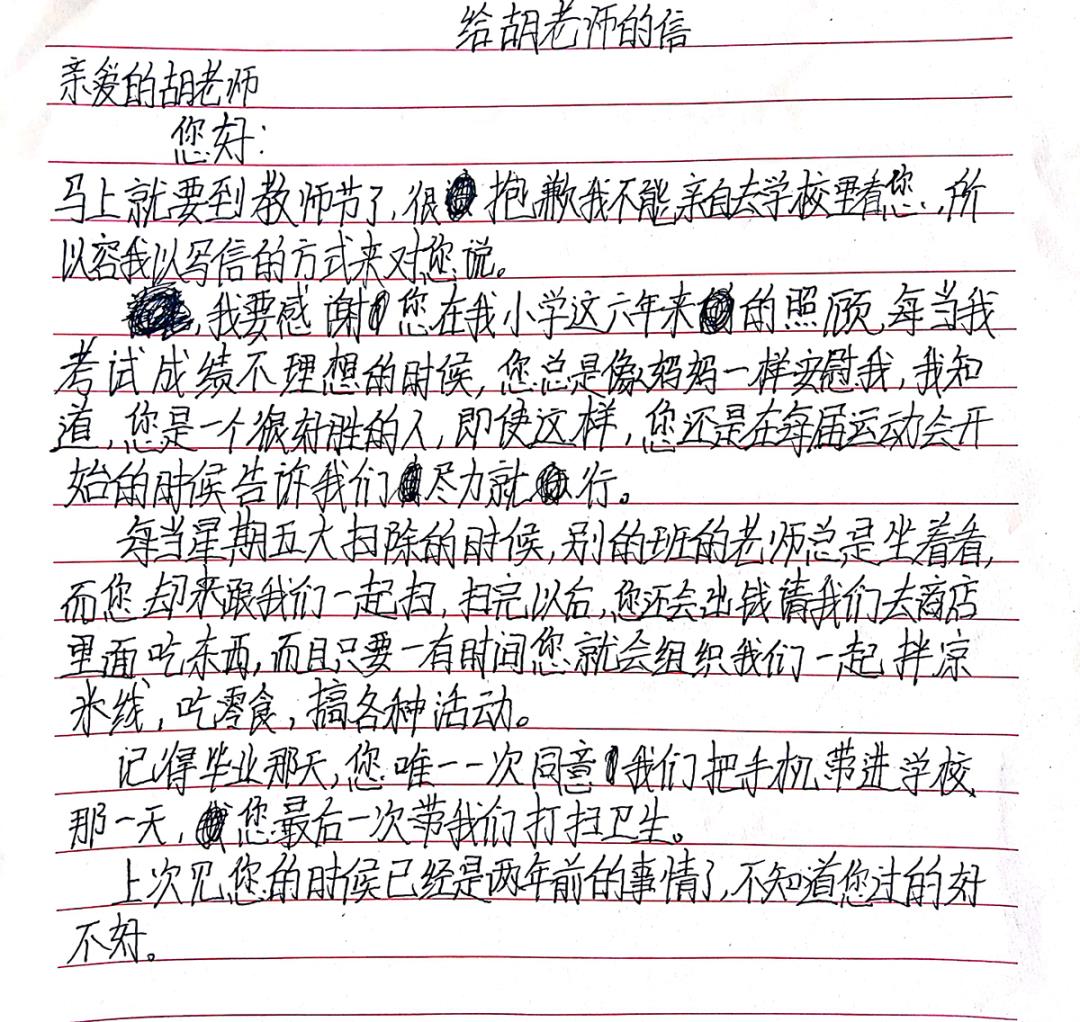 给胡老师的信
亲爱的胡老师
您好:
马上就要到教师节了,很抱歉我不能亲自去学校里看您,所
以容我以写信的方式来对您说。
,我要感谢您在我小学这六年来的照顾,每当我
考试成绩不理想的时候,您总是像妈妈一样安慰我,我知
道,您是一个很好胜的人,即使这样,您还是在每届运动会开
始的时候告诉我们尽力就行。
每当星期五大扫除的时候,别的班的老师总是坐着看,
而您却来跟我们一起扫,扫完以后,您还会出钱请我们去商店
里面吃东西,而且只要一有时间您就会组织我们一起拌凉
米线,吃零食,搞各种活动。
记得毕业那天,您唯一一次同意我们把手机带进学校,
那一天,您最后一次带我们打扫卫生。
上次见您的时候已经是两年前的事情了,不知道您过的好
不好。